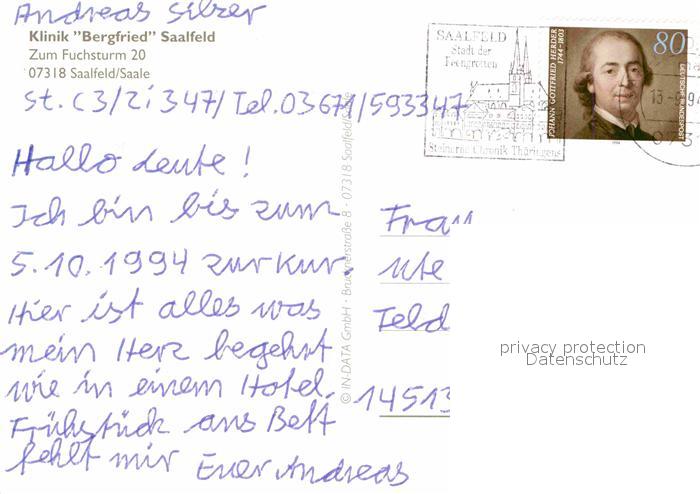 Andreas Silzer
Klinik "Bergfried" Saalfeld
Zum Fuchsturm 20
07318 Saalfeld/Saale
St. C3/Zi 347/Tel. 03671/593347
Hallo Leute!
Ich bin bis zum
5.10.1994 zur Kur.
Hier ist alles was
mein Herz begehrt
wie in einem Hotel.
Frühstück ans Bett
fehlt mir Euer Andreas
© IN.DATA GmbH · 07318 Saalfeld/Saale
SAALFELD
Stadt der
Feengrotten
Steinerne Chronik Thüringens
JOHANN GOTTFRIED HERDER
1744-1803
80
DEUTSCHE BUNDESPOST
Frau
Ute
Feld
14513
privacy protection
Datenschutz